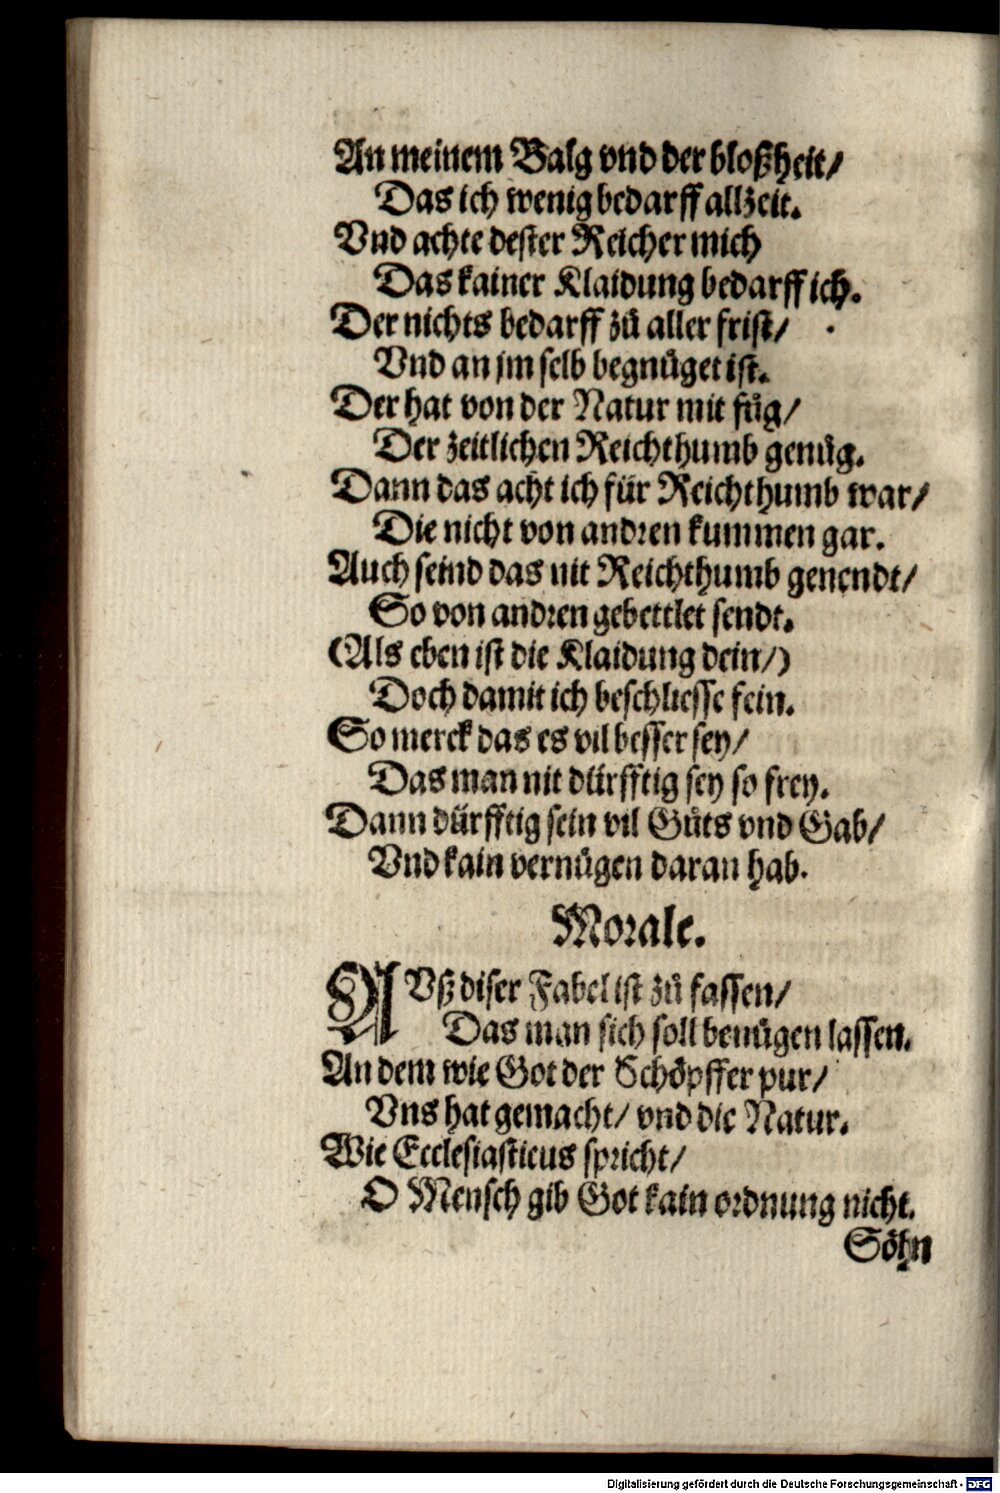 An meinem Balg vnd der bloßheit/
Das ich wenig bedarff allzeit.
Vnd achte dester Reicher mich
Das kainer Klaidung bedarff ich.
Der nichts bedarff zů aller frist/
Vnd an jm selb begnůget ist.
Der hat von der Natur mit fůg/
Der zeitlichen Reichthumb genůg.
Dann das acht ich für Reichthumb war/
Die nicht von andren kummen gar.
Auch seind das nit Reichthumb genendt/
So von andren gebettlet sendt.
(Als eben ist die Klaidung dein/)
Doch damit ich beschliesse fein.
So merck das es vil besser sey/
Das man nit dürfftig sey so frey.
Dann dürfftig sein vil Gůts vnd Gab/
Vnd kain vernůgen daran hab.
Morale.
AVß diser Fabel ist zů fassen/
Das man sich soll benůgen lassen.
An dem wie Got der Schöpffer pur/
Vns hat gemacht/ vnd die Natur.
Wie Ecclesiasticus spricht/
O Mensch gib Got kain ordnung nicht.
Söhn
Digitalisierung gefördert durch die Deutsche Forschungsgemeinschaft - DFG